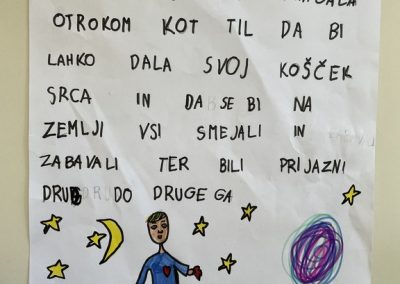 OTROKOM KOT TIL DA BI
LAHKO DALA SVOJ KOŠČEK
SRCA IN DA SE BI NA
ZEMLJI VSI SMEJALI IN
ZABAVALI TER BILI PRIJAZNI
DRUG DO DRUGEGA